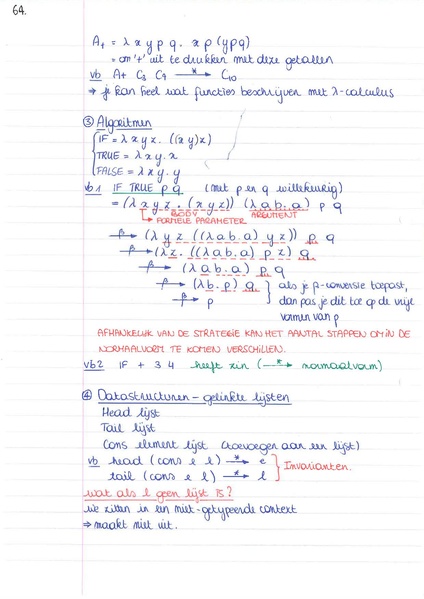 64.
A+ = λ x y p q . x p (y p q)
= om '+' uit te drukken met deze getallen
vb A+ C3 C7 —*→ C10
⇒ je kan heel wat functies beschrijven met λ-calculus
③ Algoritmen
IF = λ x y z . ((x y) z)
TRUE = λ x y . x
FALSE = λ x y . y
vb1 IF TRUE p q (met p en q willekeurig)
= (λ x y z . (x y z)) (λ a b . a) p q
BODY ARGUMENT
FORMELE PARAMETER
—β→ (λ y z ((λ a b . a) y z)) p q
—β→ (λ z . ((λ a b . a) p z) q
—β→ (λ a b . a) p q
—β→ (λ b . p) q
—β→ p
als je β-conversie toepast,
dan pas je dit toe op de vrije
vormen van p
AFHANKELIJK VAN DE STRATEGIE KAN HET AANTAL STAPPEN OM IN DE
NORMAALVORM TE KOMEN VERSCHILLEN.
vb2 IF + 3 4 heeft zin (—*→ normaalvorm)
④ Datastructuren - gelinkte lijsten
Head lijst
Tail lijst
Cons element lijst (toevoegen aan een lijst)
vb head (cons e l) —*→ e
tail (cons e l) —*→ l
Invarianten.
wat als l geen lijst is?
we zitten in een niet-getypeerde context
⇒ maakt niet uit.